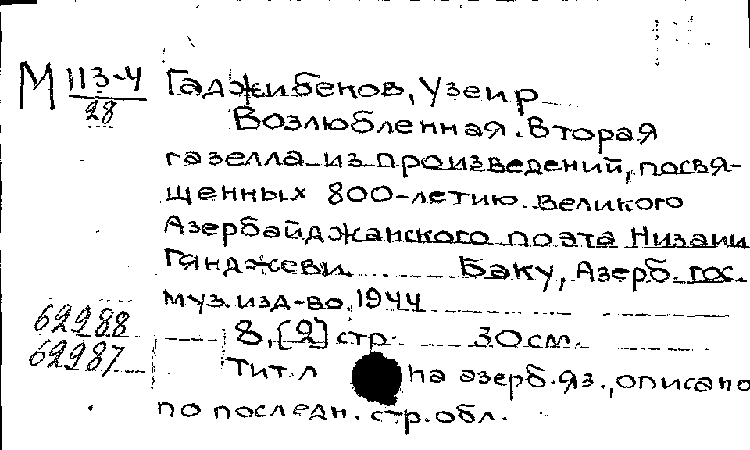 М 113-4 Гаджибеков, Узеир
28
Возлюбленная. Вторая
газелла из произведений, посвя-
щенных 800-летию великого
Азербайджанского поэта Низами
Гянджеви. Баку, Азерб. гос.
муз. изд-во, 1944
62288 8, [2] стр. 30 см.
62287 Тит. л на азерб. яз., описано
по последн. стр. обл.